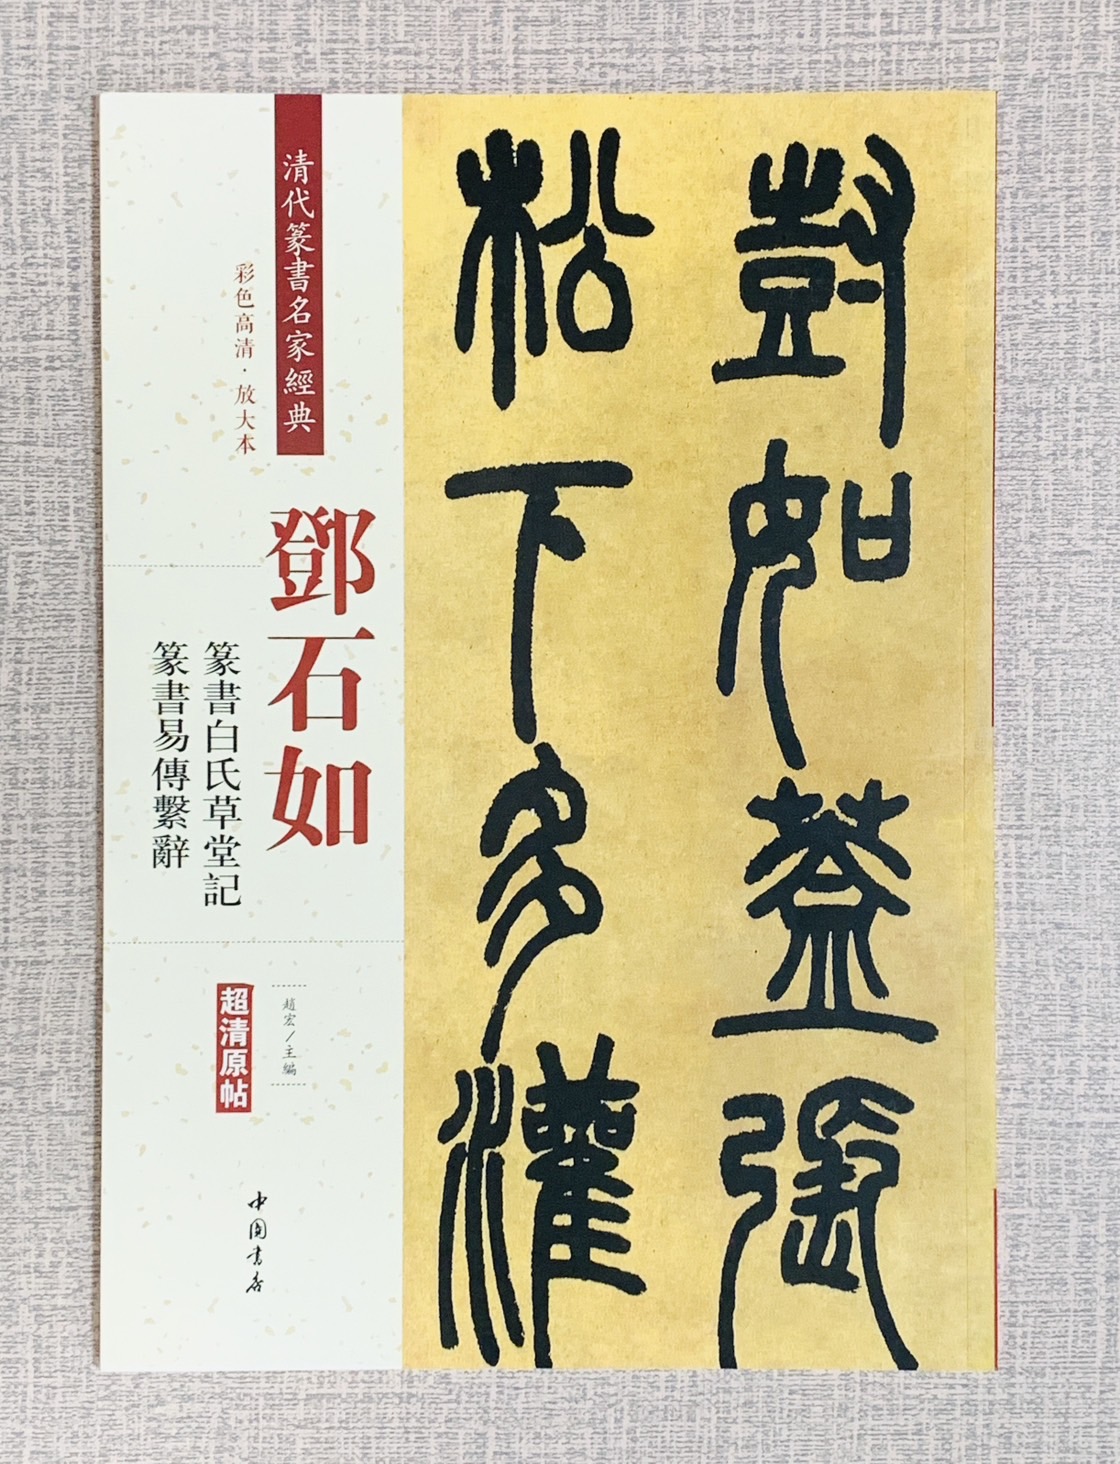 尌如蓋張
松下多灌
清代篆書名家經典
彩色高清·放大本
鄧石如
篆書白氏草堂記
篆書易傳繫辭
趙宏／主編
超清原帖
中国书店